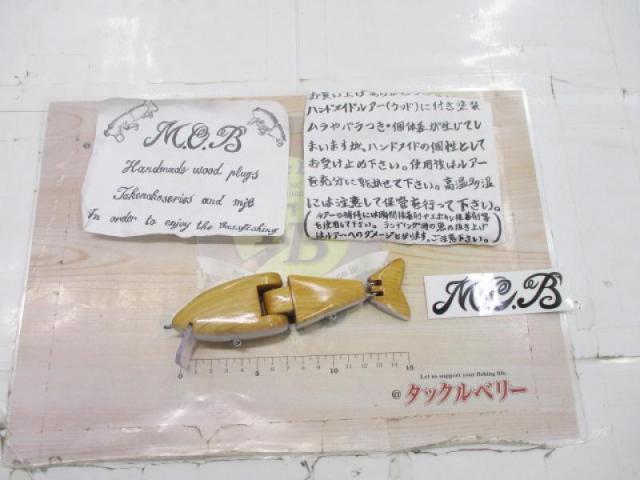 M.O.B
Handmade wood plugs
Takenokoseries and mjB
In order to enjoy the bassfishing
お買い上げありがとう
ハンドメイドルアー(ウッド)に付き塗装
ムラやバラつき・個体差が生じてし
まいますが、ハンドメイドの個性として
お受け止め下さい。使用後はルアー
を充分に乾かせて下さい。高温多湿
には注意して保管を行って下さい。
を使用して下さい。ランディング時の魚の抜き上げ
はルアーへのダメージとなります。ご注意下さい。
M.O.B
0 5 10 15
Let us support your fishing life.
@タックルベリー